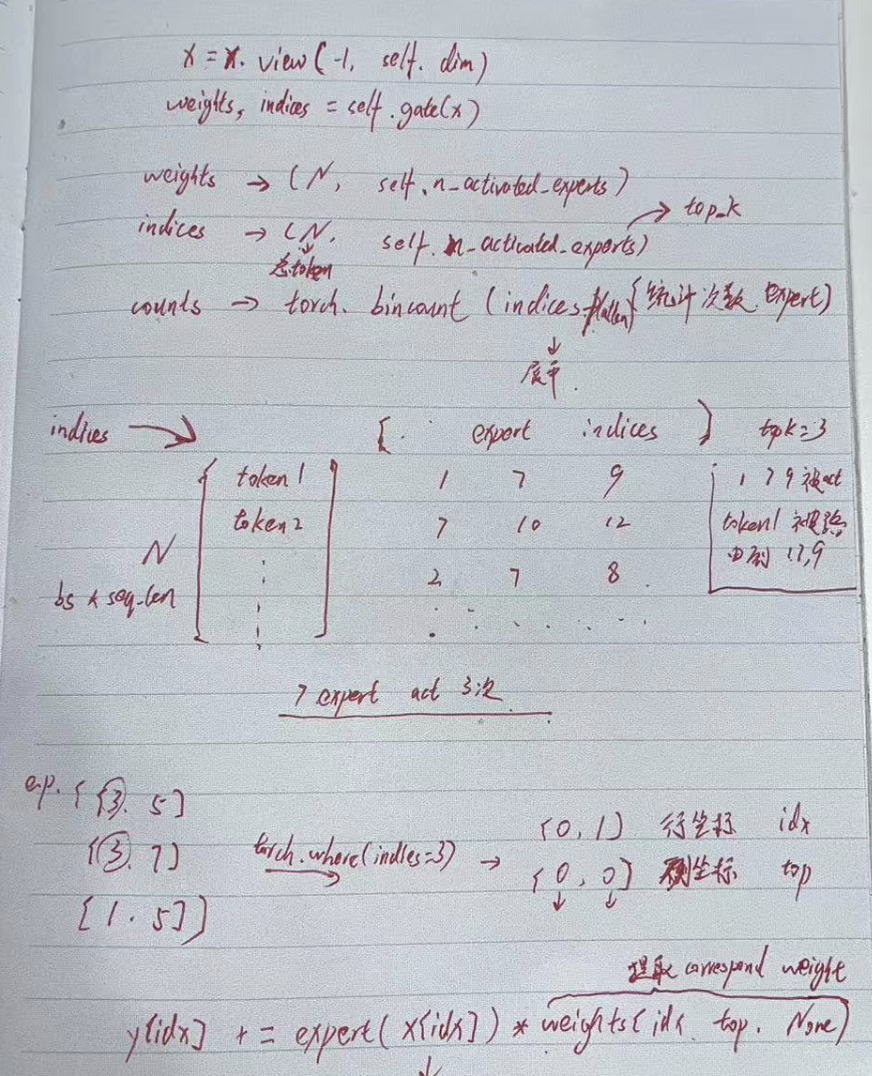 x = x. view(-1, self. dim)
weights, indices = self.gate(x)
weights → (N, self.n_activated_experts)
→ top_k
indices → (N, self.n_activated_experts)
↓
总token
counts → torch. bincount (indices.flatten 统计次数 expert)
↓
展平.
indices → [ expert indices ] topk=3
token1 1 7 9 1 7 9 被act
token2 7 10 12 token1 被
N ⋮ 2 7 8 1.7,9
bs * seq_len
7 expert act 3次
[[3. 5]
[3. 7]
[1. 5]]
torch.where(indices=3) →
[0, 1] 行坐标 idx
[0, 0] 列坐标 top
↓ ↓
提取 correspond weight
y[idx] += expert(x[idx]) * weights[idx top. None]
↓